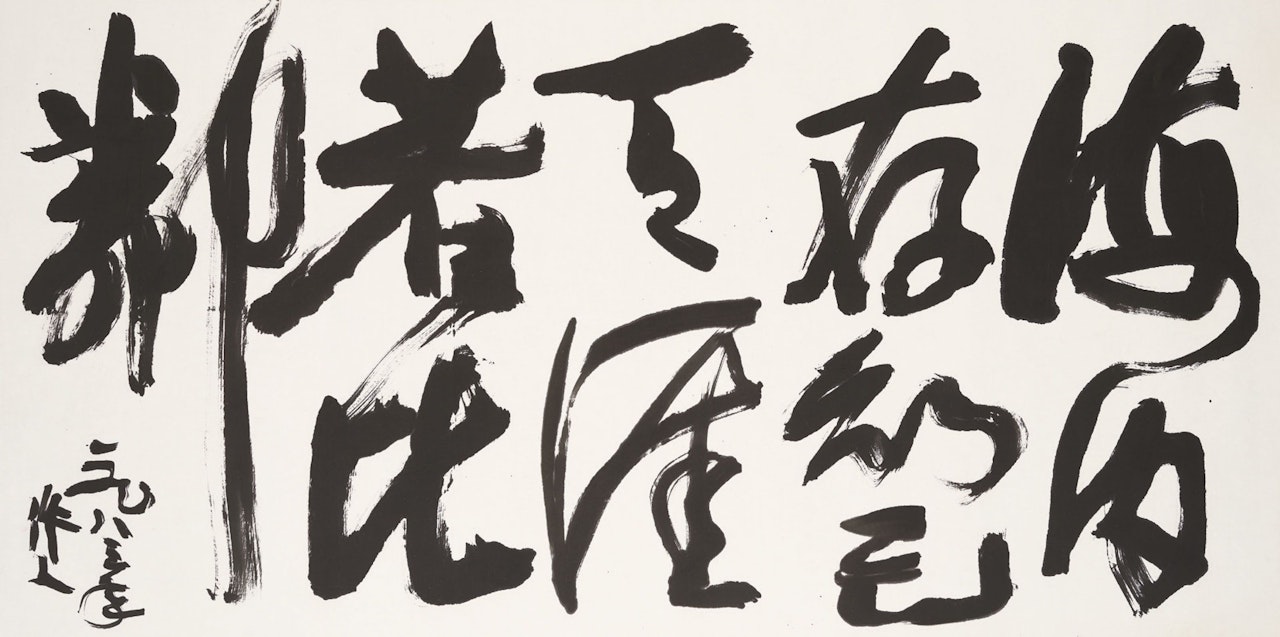 海内
存知己
天涯
若比
鄰
一九八三年
作人